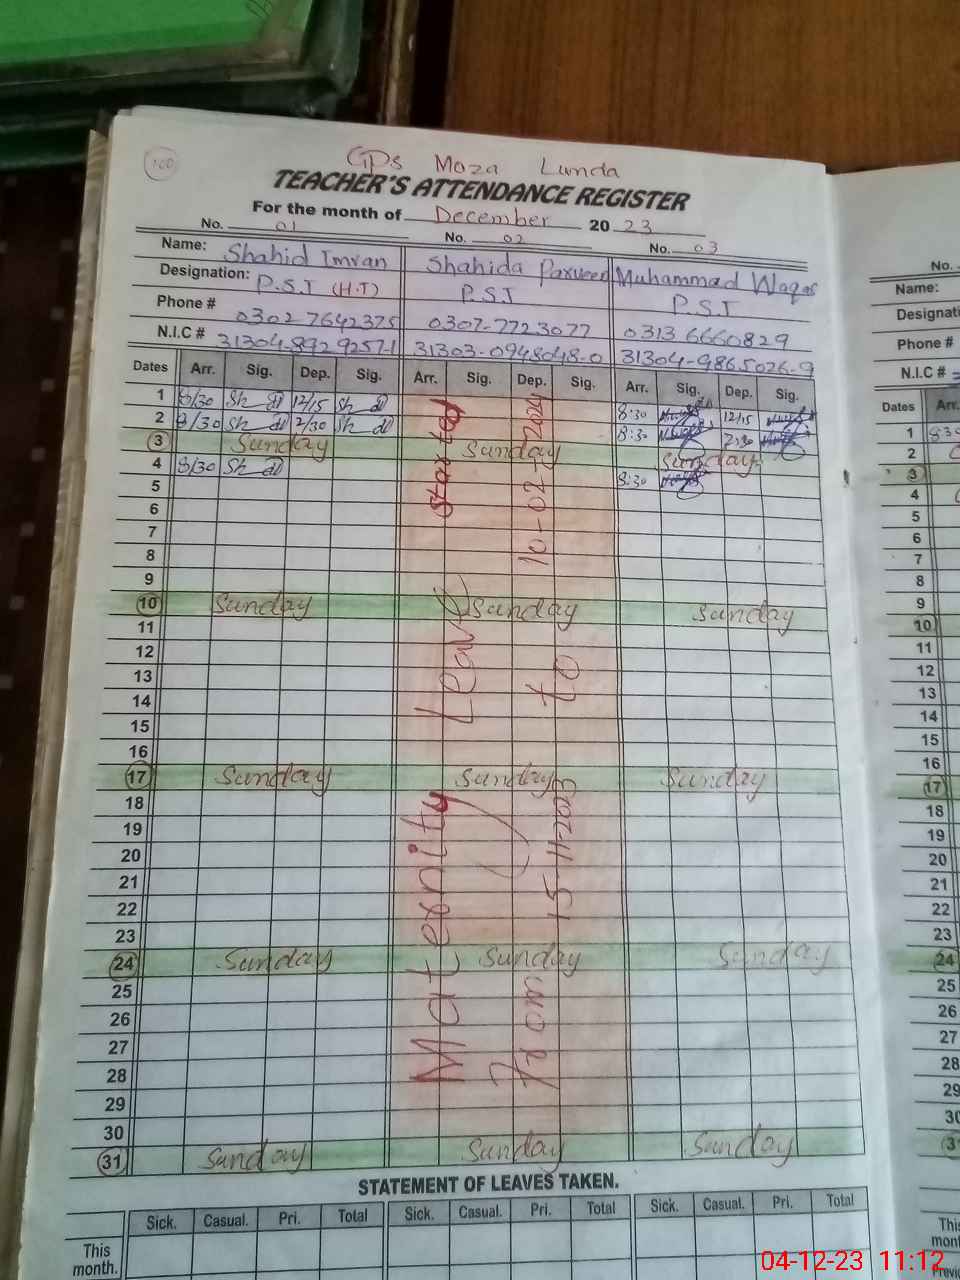 100
GPS Moza Lunda
TEACHER'S ATTENDANCE REGISTER
For the month of December 2023
No. 01 No. 02 No. 03
Name: Shahid Imran Shahida Parveen Muhammad Waqas
Designation: P.S.T (H.T) P.S.T P.S.T
Phone # 0302 7642375 0307-7723077 0313 6660829
N.I.C # 31304-8929257-1 31303-0948048-0 31304-9865026-9
Dates Arr. Sig. Dep. Sig. Arr. Sig. Dep. Sig. Arr. Sig. Dep. Sig.
1 8/30 12/15 8:30 12/15
2 8/30 2/30 8:30 2:30
3 Sunday Sunday Sunday
4 8/30 8:30
5
6
7
8
9
10 Sunday Sunday Sunday
11
12
13
14
15
16
17 Sunday Sunday Sunday
18
19
20
21
22
23
24 Sunday Sunday Sunday
25
26
27
28
29
30
31 Sunday Sunday Sunday
Maternity Leave started
From 15-11-2023 to 10-02-2024
STATEMENT OF LEAVES TAKEN.
Sick. Casual. Pri. Total Sick. Casual. Pri. Total Sick. Casual. Pri. Total
This
month.
No.
Name:
Designati
Phone #
N.I.C #
Dates Arr.
1 8:30
2
3
4
5
6
7
8
9
10
11
12
13
14
15
16
17
18
19
20
21
22
23
24
25
26
27
28
29
30
This
mont
Previo
04-12-23 11:12